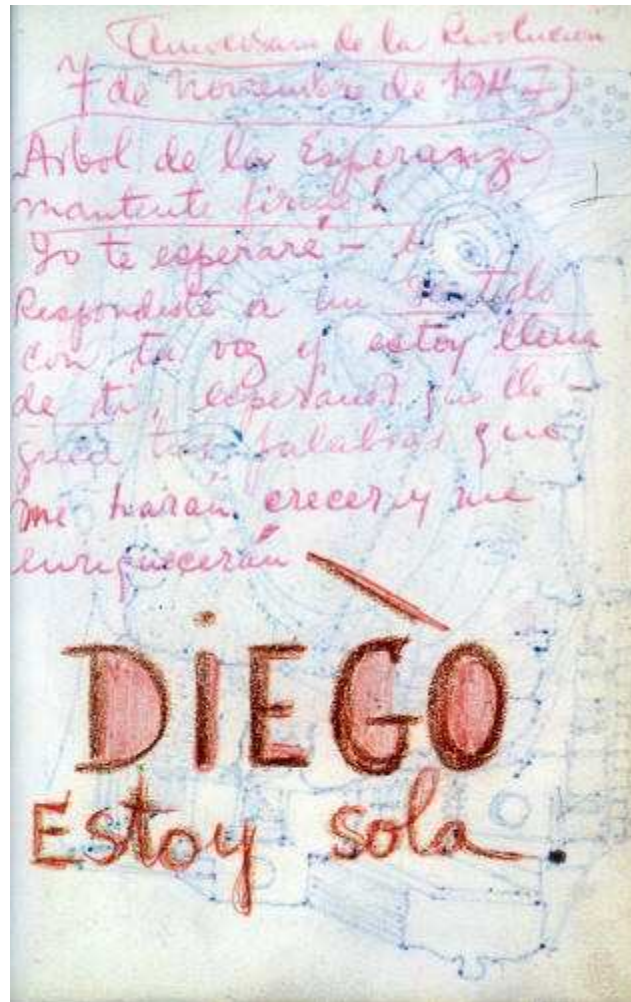 Aniversario de la Revolución
7 de Noviembre de 1947
Arbol de la Esperanza
mantente firme!
Yo te esperaré –
Respondiste a un sentido
con tu voz y estoy llena
de ti, esperando que lle-
guen tus palabras que
me harán crecer y me
enriquecerán
DiEGO
Estoy sola.